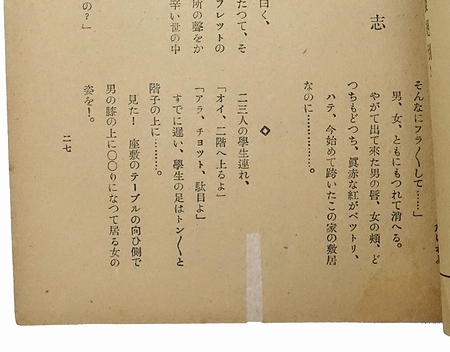 志
曰く、
たつて、そ
フレツトの
所の聲をか
辛い世の中
の？」
そんなにフラ〳〵して……」
男、女、ともにもつれて消へる。
やがて出て來た男の唇、女の頬、ど
つちもどつち、眞赤な紅がベツトリ、
ハテ、今始めて跨いたこの家の敷居
なのに…………。
◇
二三人の學生連れ、
「オイ、二階へ上るよ」
「アラ、チョツト、駄目よ」
すでに遲い、學生の足はトン〳〵と
階子の上に………。
見た！ 座敷のテーブルの向ひ側で
男の膝の上に〇〇りになつて居る女の
姿を！。
二七